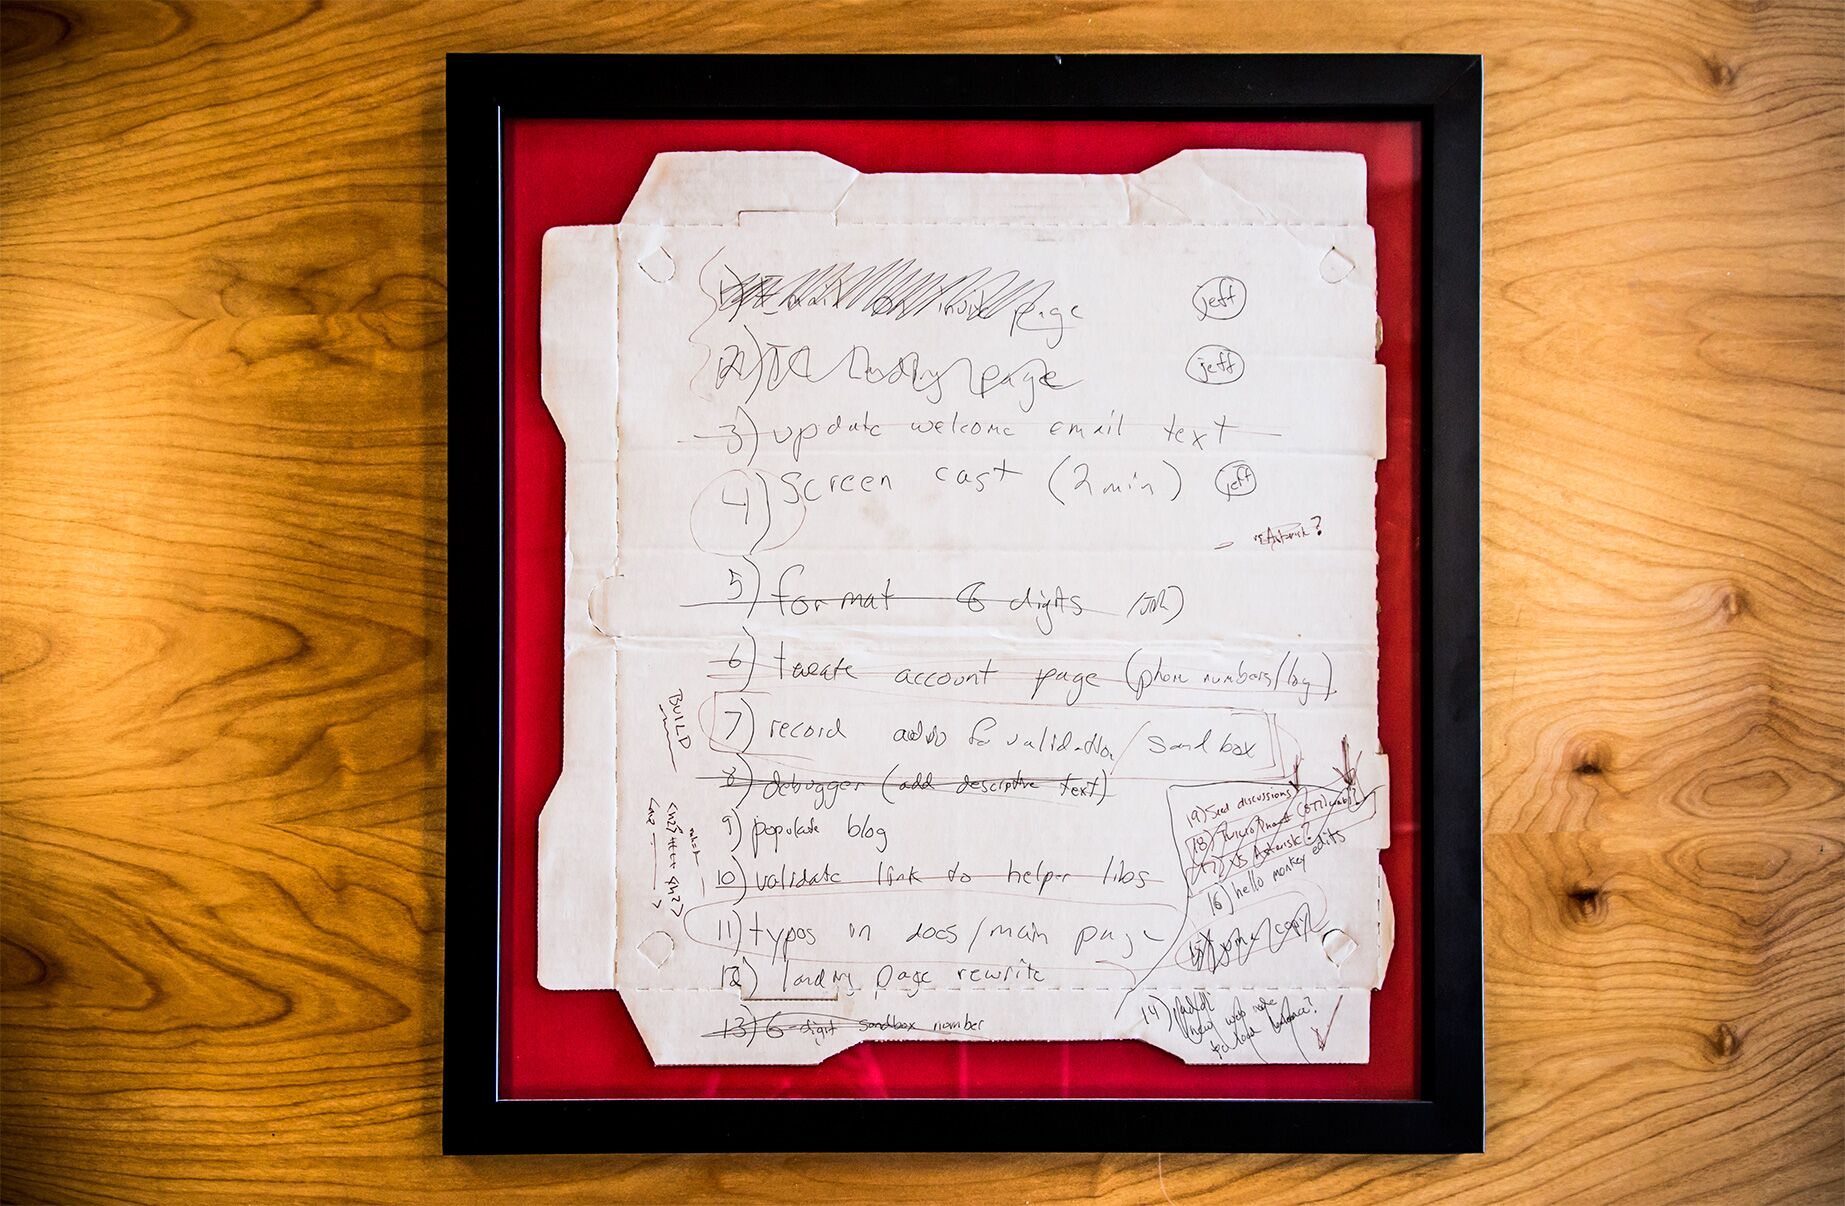 1) E-mail on invite page jeff
2) TC landing page jeff
3) update welcome email text
4) Screen cast (2 min) jeff
vs Asterisk?
5) format 6 digits
6) tweak account page (phone numbers/log)
BUILD
7) record audio for validation / sandbox
8) debugger (add descriptive text)
9) populate blog
10) validate link to helper libs
11) typos in docs/main page
12) landing page rewrite
13) 6-digit sandbox number
19) Seed discussions
18)
17) vs Asterisk?
16) hello monkey edits
15) copy
14) new web